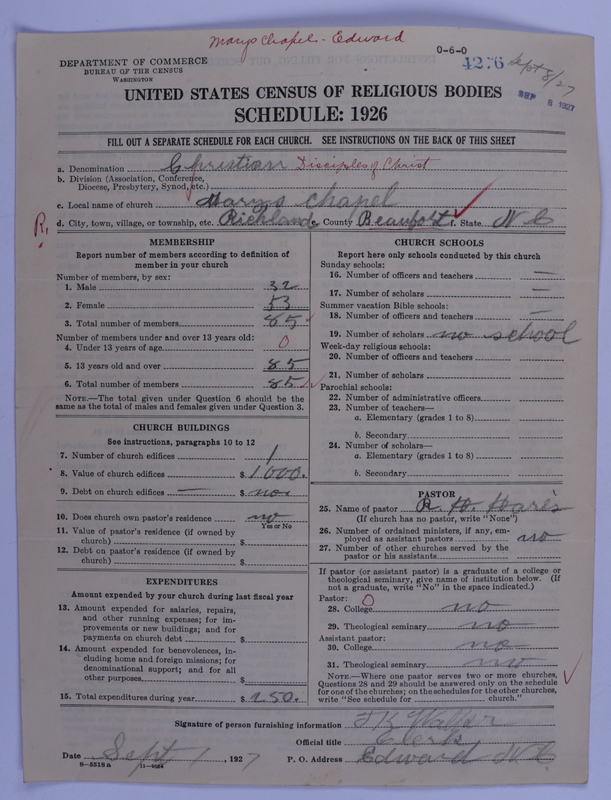 Marys Chapel - Edward
0-6-0
4276 Sept 8/27
SEP 8 1927
DEPARTMENT OF COMMERCE
BUREAU OF THE CENSUS
WASHINGTON
UNITED STATES CENSUS OF RELIGIOUS BODIES
SCHEDULE: 1926
FILL OUT A SEPARATE SCHEDULE FOR EACH CHURCH. SEE INSTRUCTIONS ON THE BACK OF THIS SHEET
a. Denomination Christian Disciples of Christ
b. Division (Association, Conference,
Diocese, Presbytery, Synod, etc.)
c. Local name of church Marys Chapel
R. d. City, town, village, or township, etc. Richland e. County Beaufort f. State N C
MEMBERSHIP
Report number of members according to definition of
member in your church
Number of members, by sex:
1. Male 32
2. Female 53
3. Total number of members 85
Number of members under and over 13 years old:
4. Under 13 years of age 0
5. 13 years old and over 85
6. Total number of members 85
NOTE.—The total given under Question 6 should be
same as the total of males and females given under Question 3.
CHURCH BUILDINGS
See instructions, paragraphs 10 to 12
7. Number of church edifices 1
8. Value of church edifices $ 1000.
9. Debt on church edifices — $ no
10. Does church own pastor's residence no
Yes or No
11. Value of pastor's residence (if owned by
church) $
12. Debt on pastor's residence (if owned by
church) $
EXPENDITURES
Amount expended by your church during last fiscal year
13. Amount expended for salaries, repairs,
and other running expenses; for im-
provements or new buildings; and for
payments on church debt $
14. Amount expended for benevolences, in-
cluding home and foreign missions; for
denominational support; and for all
other purposes $
15. Total expenditures during year $ 250.
CHURCH SCHOOLS
Report here only schools conducted by this church
Sunday schools:
16. Number of officers and teachers —
17. Number of scholars —
Summer vacation Bible schools:
18. Number of officers and teachers —
19. Number of scholars no school
Week-day religious schools:
20. Number of officers and teachers
21. Number of scholars
Parochial schools:
22. Number of administrative officers
23. Number of teachers—
a. Elementary (grades 1 to 8)
b. Secondary
24. Number of scholars—
a. Elementary (grades 1 to 8)
b. Secondary
PASTOR
25. Name of pastor R. H.
(If church has no pastor, write "None")
26. Number of ordained ministers, if any, em-
ployed as assistant pastors no
27. Number of other churches served by the
pastor or his assistants
If pastor (or assistant pastor) is a graduate of a college or
theological seminary, give name of institution below. (If
not a graduate, write "No" in the space indicated.)
Pastor: 0
28. College no
29. Theological seminary no
Assistant pastor:
30. College no
31. Theological seminary no
NOTE.—Where one pastor serves two or more churches,
Questions 28 and 29 should be answered only on the schedule
for one of the churches; on the schedules for the other churches,
write "See schedule for church."
Signature of person furnishing information
Official title Clerk
Date Sept 1, 1927 P. O. Address Edward N C
8-5518a 11-4024